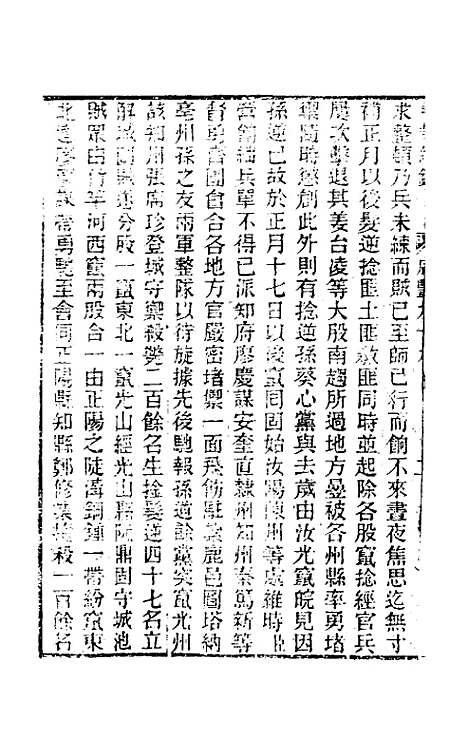 求整頓乃兵未練而賊已至師已行而餉不來晝夜焦思迄無寸
補正月以後髮逆捻匪土匪敎匪同時並起除各股竄捻經官兵
屢次擊退其姜台凌等大股南趨所過地方曇被各州縣率勇堵
禦隨時懲創此外則有捻逆孫葵心黨與去歲由汝光竄皖見因
孫逆已故於正月十七日以後竄回固始汝陽陳州等處維時
營餉細兵單不得已派知府廖慶謀安奎直隸州知州秦篤新等
督勇會團會合各地方官嚴密堵禦一面飛飭鹿邑圖塔納
亳州孫之友兩軍整隊以待旋據先後馳報孫逆餘黨突竄光州
該知州張席珍登城守禦殺斃二百餘名生捻髮逆四十七名立
解城圍賊遂分股一竄東北一竄光山經光山縣阮鼎固守城池
賊眾由青羊河西竄兩股合一由正陽之陡溝銅鐘一帶紛竄東
北委彥帶勇馳至會同正陽縣知縣鄭修殺一百餘名